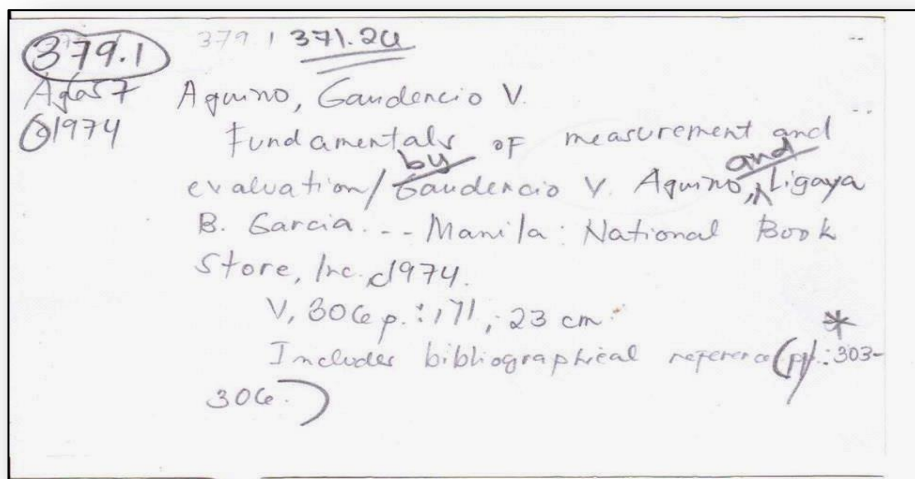 379.1 379.1 371.26
Aq657 Aquino, Gaudencio V.
c1974 Fundamentals of measurement and
evaluation/ by Gaudencio V. Aquino, and Ligaya
B. Garcia. -- Manila: National Book
Store, Inc. c1974.
V, 306 p. : ill, ; 23 cm.
Includes bibliographical reference (pp. : 303-
306.)
*